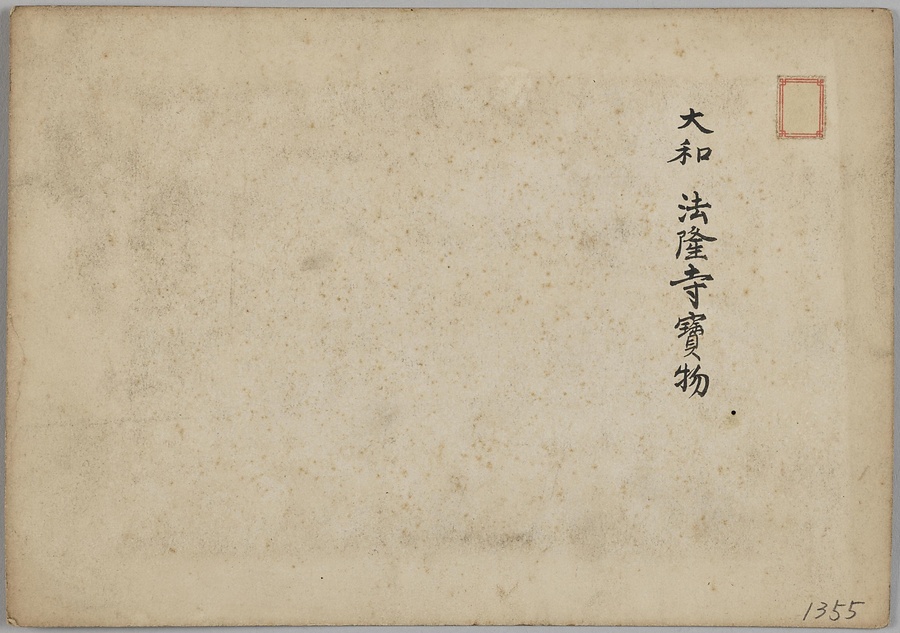 大和 法隆寺寶物
1355